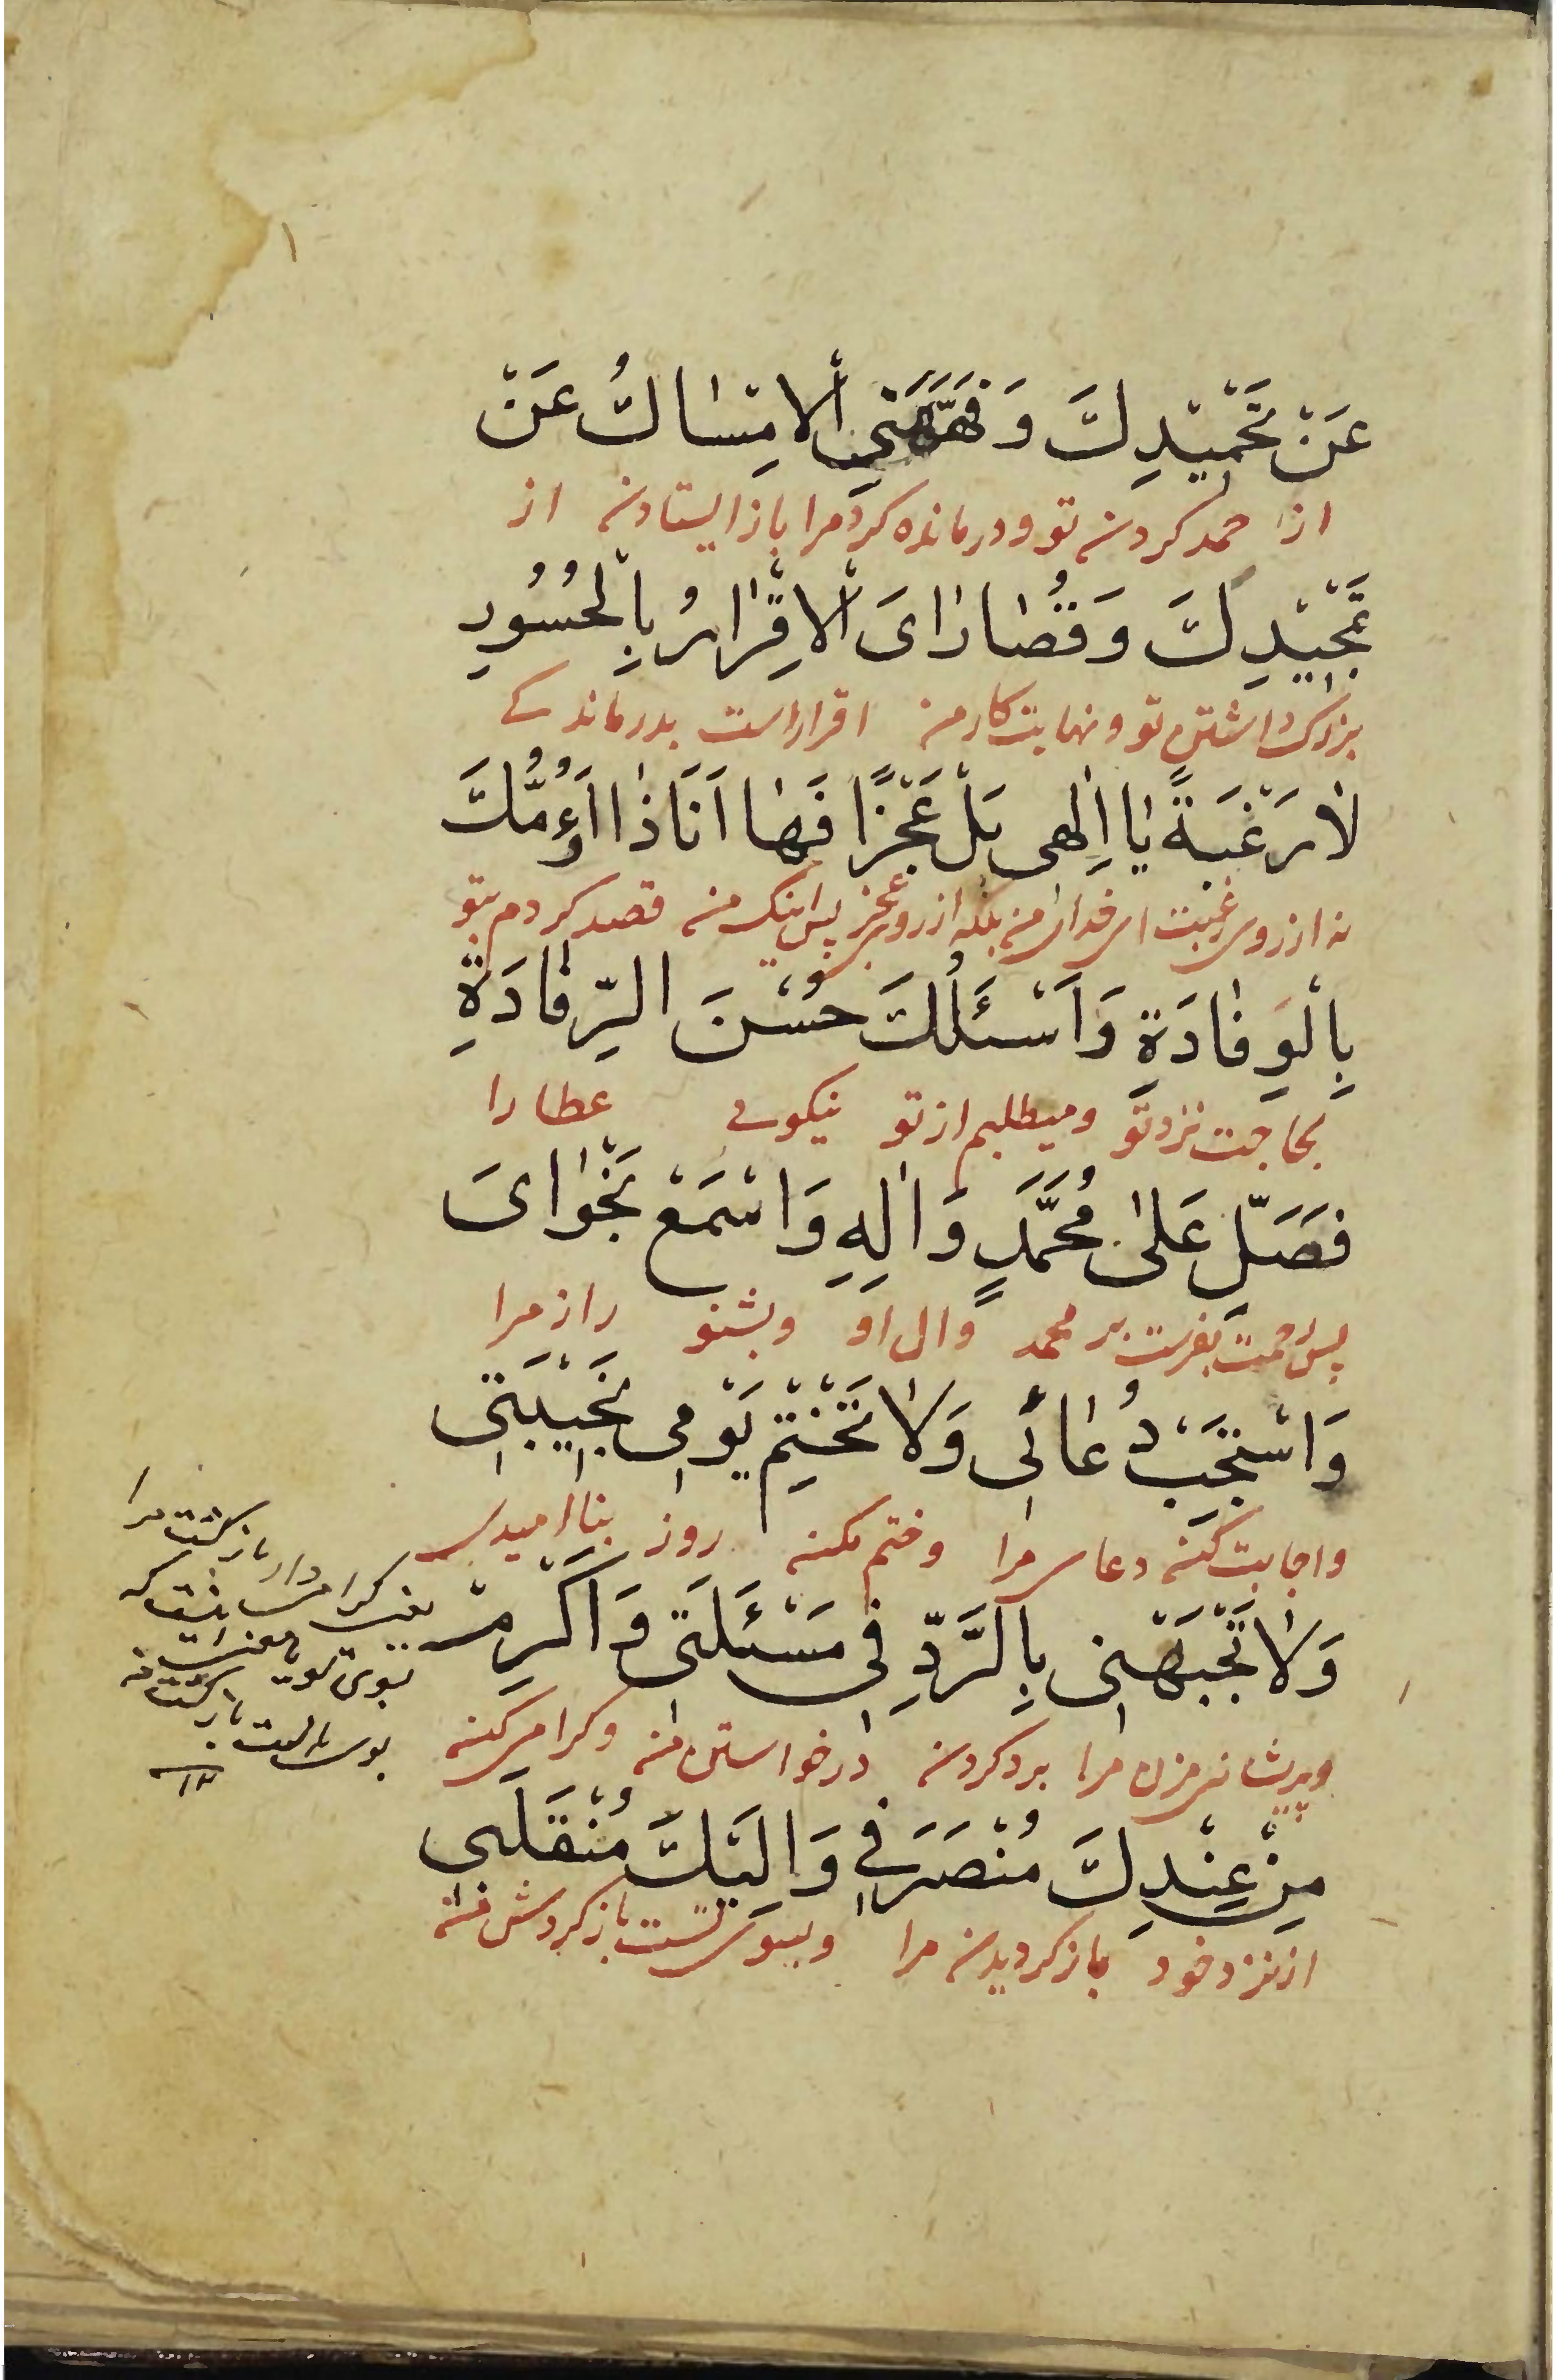 عَنْ تَحْمِيْدِكَ وَفَهَّهَنِي الْاِمْسَاكُ عَنْ
از حمد کردن تو و درمانده کرد مرا باز ایستادن از
تَمْجِيْدِكَ وَقُصَارَاىَ الْاِقْرَارُ بِالْحُسُورِ
بزرک داشتن تو و نهایت کار من اقرار است بدرماندکے
لَا رَغْبَةً يَا اِلٰهِى بَلْ عَجْزًا فَهَا اَنَا ذَا اَؤُمُّكَ
نه از روی رغبت ای خدای من بلکه از روی عجز پس اینک من قصد کردم بتو
بِالْوِفَادَةِ وَاَسْئَلُكَ حُسْنَ الرِّفَادَةِ
بحاجت نزد تو و میطلبم از تو نیکوے عطا را
فَصَلِّ عَلىٰ مُحَمَّدٍ وَاٰلِهِ وَاسْمَعْ نَجْوَاىَ
پس رحمت بفرست بر محمد و ال او و بشنو راز مرا
وَاسْتَجِبْ دُعَائِى وَلَا تَخْتِمْ يَوْمِى بِخَيْبَتِى
و اجابت کن دعای مرا و ختم مکن روز بنا امیدی
وَلَا تَجْبَهْنِى بِالرَّدِّ فِى مَسْئَلَتِى وَاَكْرِمْ
و پیشانی مزن مرا برد کردن در خواستن من و کرامی کن
مِنْ عِنْدِكَ مُنْصَرَفِي وَاِلَيْكَ مُنْقَلَبِى
از نزد خود باز کردیدن مرا و بسوی تست باز کردش من
دار بازکشت مرا
۱۲